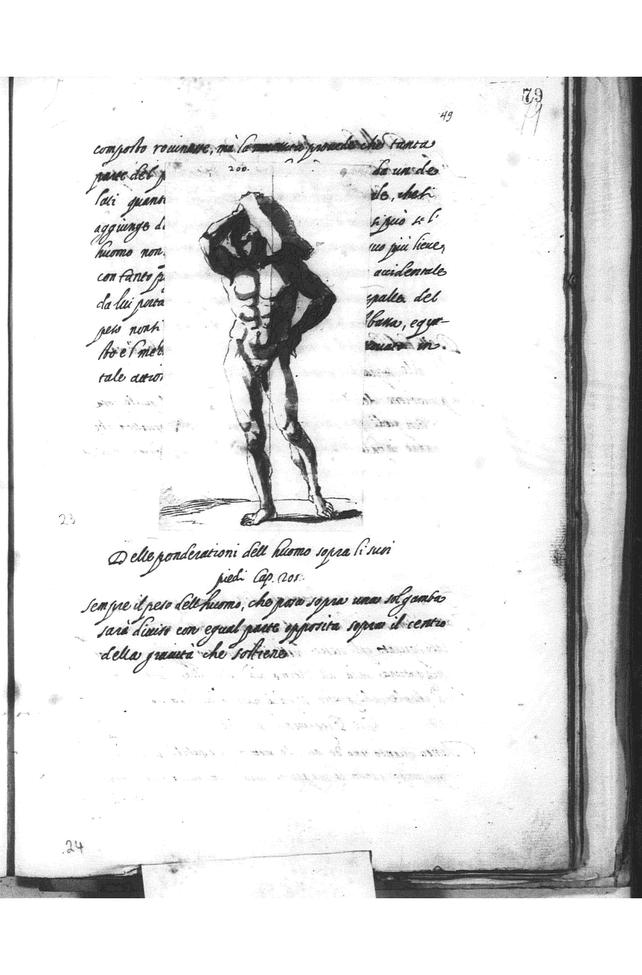 79
49
composto rovinare, mà la natura provede che tanta
200.
parte del p da un de
lati quant ile, che si
aggiunge d si può se l
huomo non uo più lieve,
con tanto p accidentale
da lui porta spalla del
peso non si
sto è l meb in
tale attio
23
Delle ponderationi dell huomo sopra li suoi
piedi Cap. 201.
Sempre il peso dell huomo, che posa sopra una sol gamba
sarà diviso con egual parte opposita sopra il centro
della gravità che sostiene
24